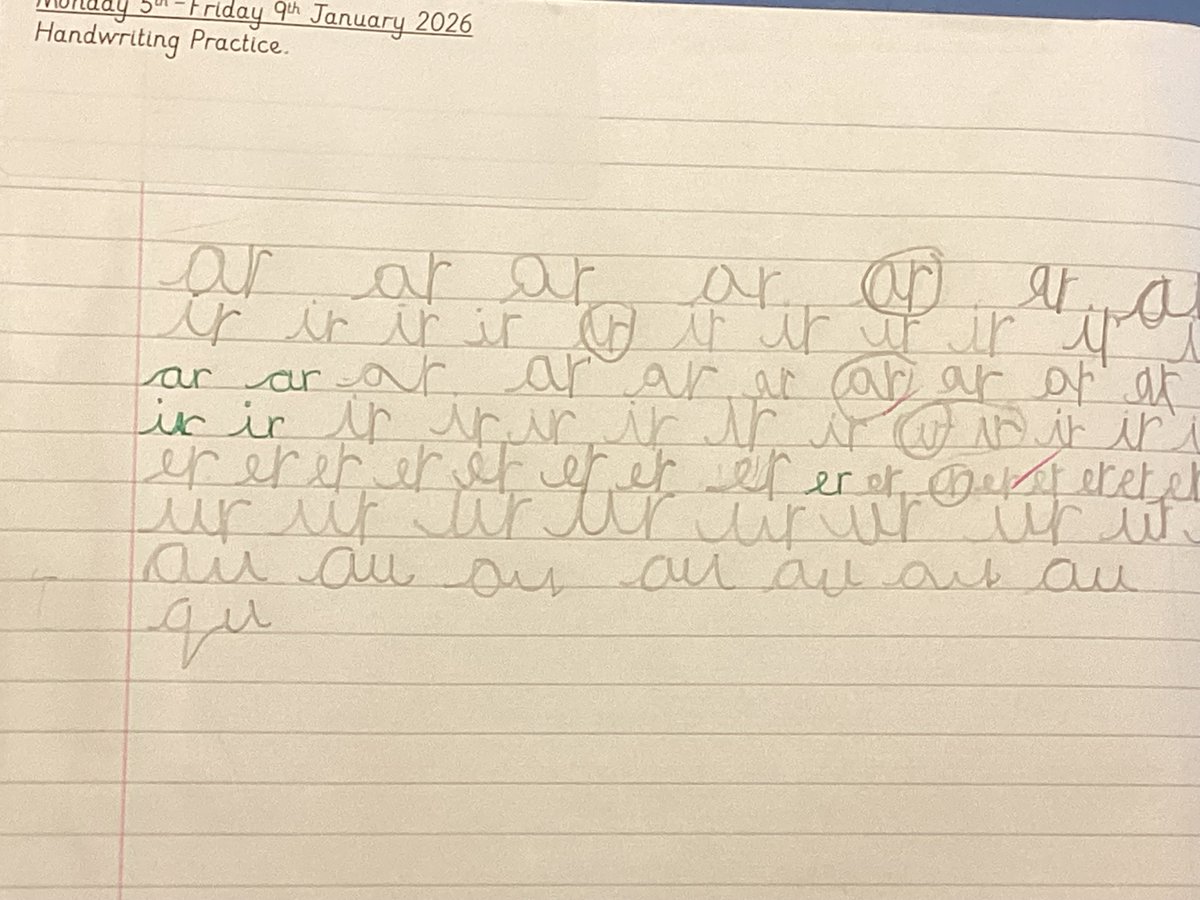 Monday 5th - Friday 9th January 2026
Handwriting Practice.
ar ar ar ar ar ar a
ir ir ir ir ir ir ir ur ir ir i
ar ar ar ar ar ar ar ar ar ar
ir ir ir ir ir ir ir ir ir ir ir ir i
er er er er er er er er er er er er er er er er
ur ur ur ur ur ur ur ur
au au au au au au au
qu